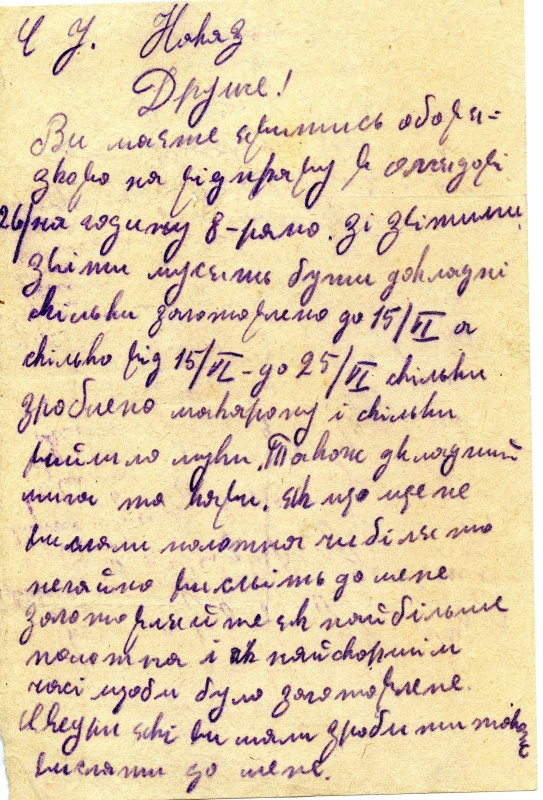 С У. Наказ
Друже!
Ви маєте явитись обовя=
зково на відправу в
26/ на годину 8-рано. зі звітами,
звіти мусять бути докладні
скільки заготовлено до 15/VI а
скілько від 15/VI - до 25/VI скільки
зроблено макарону і скільки
вийшло муки. Також докладний
та кави. як що ще не
вислали полотна чи білля то
негайно висліть до мене
заготовляйте як найбільше
полотна і як найскоршім
часі щоби було заготовлене.
які ви мали зробити також
вислати до мене.